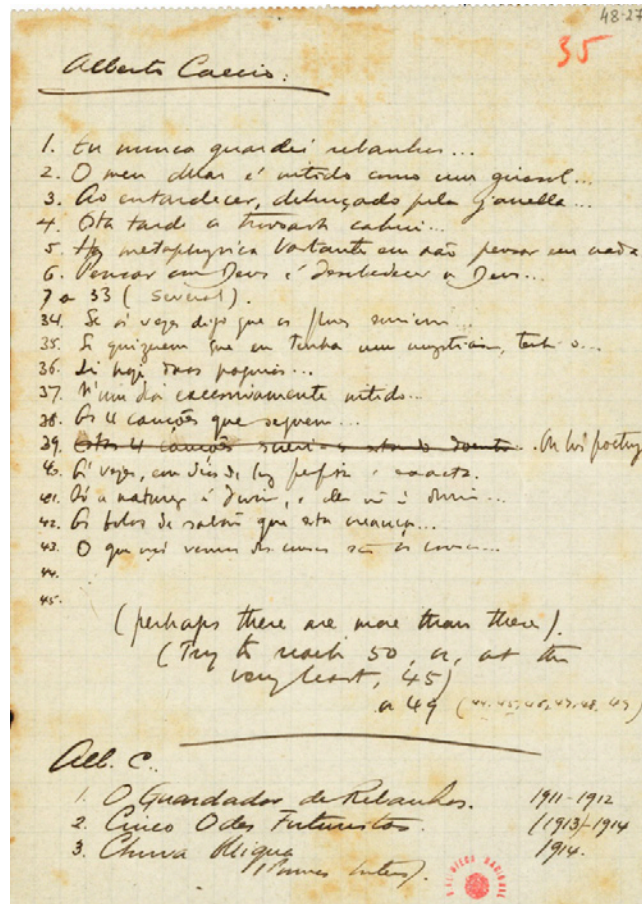 48-27
35
Alberto Caeiro:
1. Eu nunca guardei rebanhos...
2. O meu olhar é nitido como um girasol...
3. Ao entardecer, debruçado pela janella...
4. Esta tarde a trovoada cahiu...
5. Ha metaphysica bastante em não pensar em nada
6. Pensar em Deus é desobedecer a Deus...
7 a 33 (several).
34. Se ás vezes digo que as flores sorriem...
35. Se quizerem que eu tenha um mysticismo, tenho-o...
36. Li hoje duas paginas...
37. N'um dia excessivamente nitido...
38. As 4 canções que seguem...
39. Estas 4 canções estando doente...
40. Ás vezes, em dias de luz perfeita e exacta.
41. Só a natureza é divina, e ella não é divina...
42. As bolas de sabão que esta creança...
43. O que nós vemos das cousas são as cousas...
44.
45.
(perhaps there are more than these).
(Try to reach 50, or, at the
very least, 45)
or 49 (44. 45. 46. 47. 48. 49)
Alb. C.
1. O Guardador de Rebanhos. 1911-1912
2. Cinco Odes Futuristas. (1913)-1914
3. Chuva Obliqua 1914.
BIBLIOTECA NACIONAL